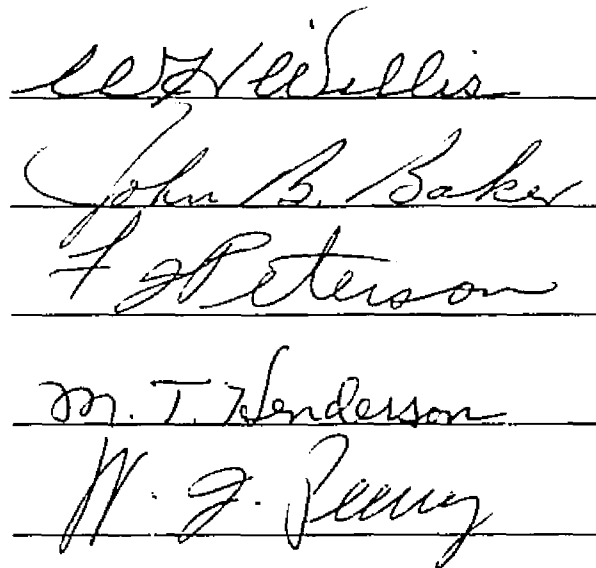 Willis
John B. Baker
F J Peterson
M. T. Henderson
W. J.